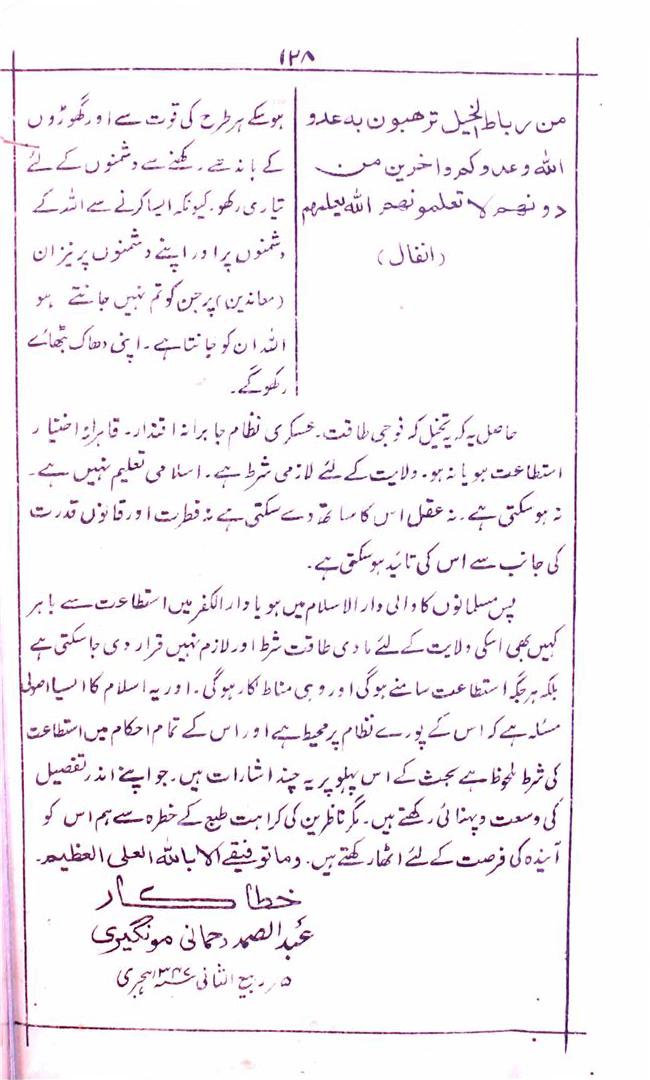 ۱۲۸
من رباط الخیل ترهبون به عدو
الله وعدوکم واخرین من
دونهم لا تعلمونهم الله یعلمهم
(انفال)
ہوسکے ہر طرح کی قوت سے اور گھوڑوں
کے باندھے رکھنے سے دشمنوں کے لئے
تیاری رکھو۔ کیونکہ ایسا کرنے سے اللہ کے
دشمنوں پر اور اپنے دشمنوں پر نیز ان
(معاندین) پر جن کو تم نہیں جانتے ہو
اللہ ان کو جانتا ہے۔ اپنی دھاک بٹھائے
رکھوگے۔
حاصل یہ کہ یہ تخیل کہ فوجی طاقت۔ عسکری نظام جابرانہ اقتدار۔ قاہرانہ اختیار
استطاعت ہو یا نہ ہو۔ ولایت کے لئے لازمی شرط ہے۔ اسلامی تعلیم نہیں ہے۔
نہ ہوسکتی ہے۔ نہ عقل اس کا ساتھ دے سکتی ہے نہ فطرت اور قانون قدرت
کی جانب سے اس کی تائید ہوسکتی ہے۔
پس مسلمانوں کا والی دار الاسلام میں ہو یا دار الکفر میں استطاعت سے باہر
کہیں بھی اسکی ولایت کے لئے مادی طاقت شرط اور لازم نہیں قرار دی جاسکتی ہے
بلکہ ہر جگہ استطاعت سامنے ہوگی اور وہی مناط کار ہوگی۔ اور یہ اسلام کا ایسا اصولی
مسئلہ ہے کہ اس کے پورے نظام پر محیط ہے اور اس کے تمام احکام میں استطاعت
کی شرط ملحوظ ہے بحث کے اس پہلو پر یہ چند اشارات ہیں۔ جو اپنے اندر تفصیل
کی وسعت و پہنائی رکھتے ہیں۔ مگر ناظرین کی کراہت طبع کے خطرہ سے ہم اس کو
آیندہ کی فرصت کے لئے اٹھا رکھتے ہیں۔ وما توفیقے الا باللہ العلی العظیم۔
خطا کار
عبد الصمد رحمانی مونگیری
۵ ربیع الثانی ۱۳۴۷ ہجری